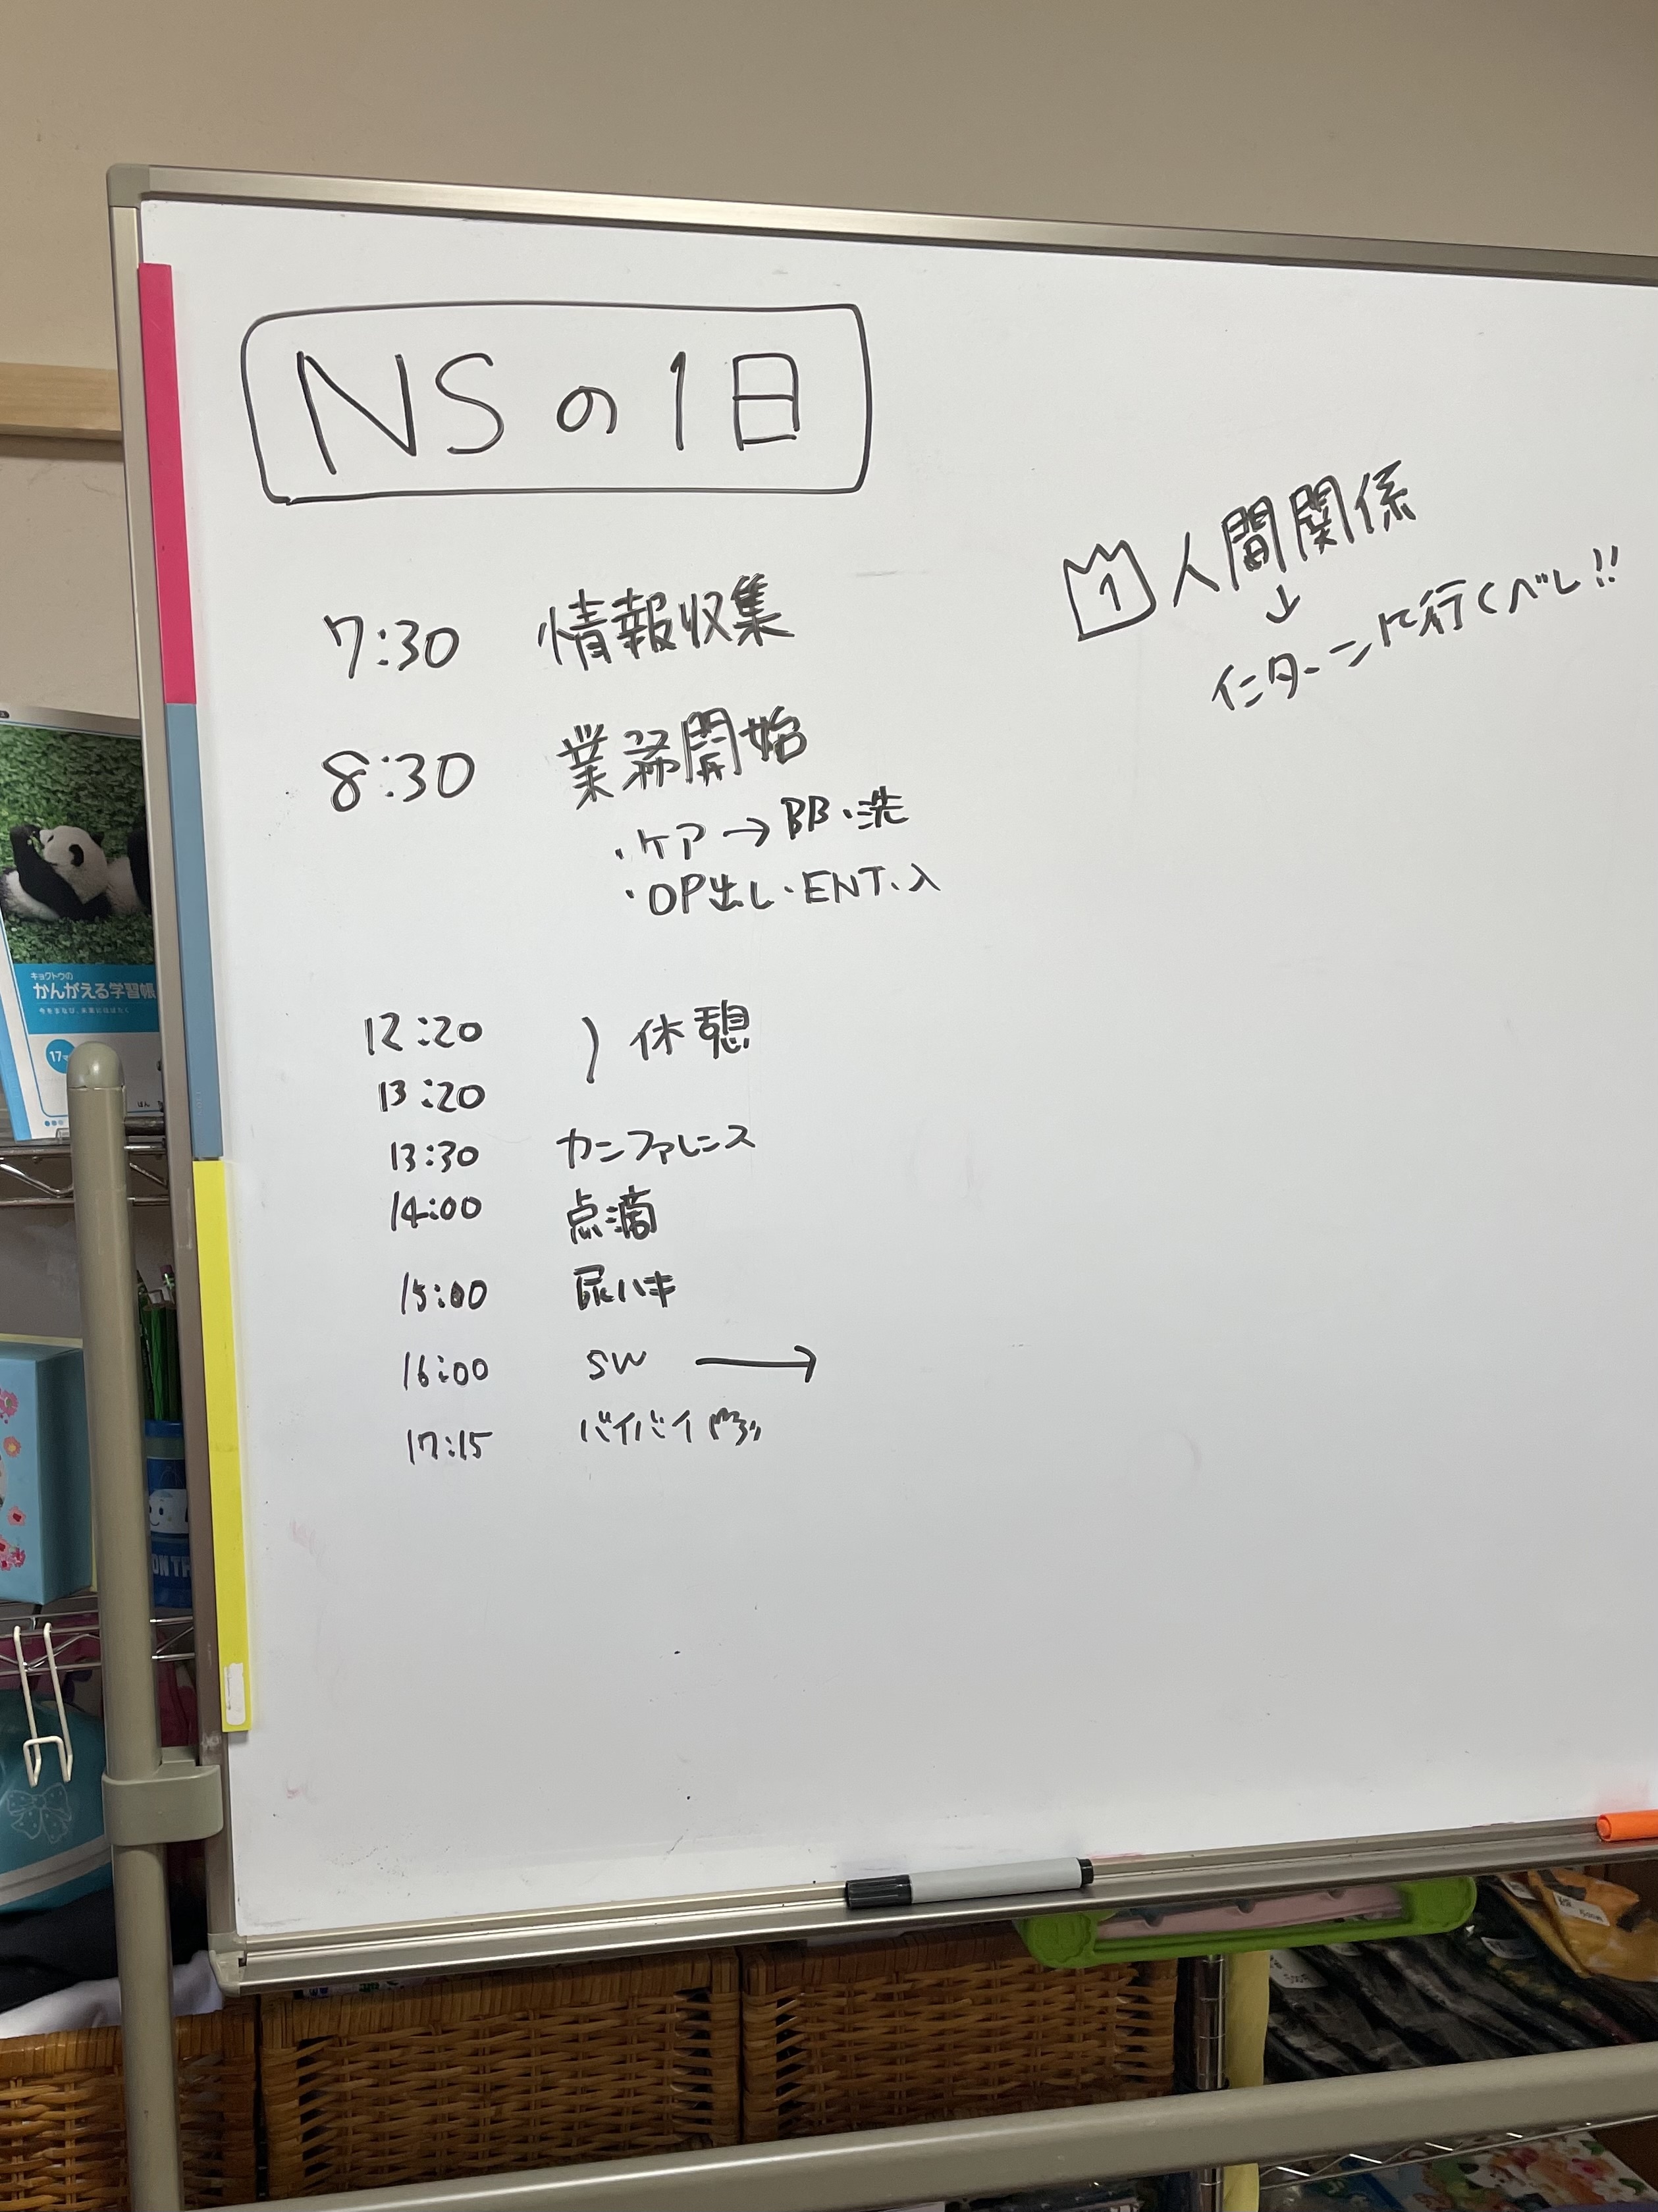 NSの1日
7:30 情報収集
8:30 業務開始
・ケア→BB・洗
・OP出し・ENT、入
12:20
13:20
) 休憩
13:30 カンファレンス
14:00 点滴
15:00 尿ハキ
16:00 SW →
17:15 バイバイ
1 人間関係
↓
インターンに行くべし!!
キョクトウの
かんがえる学習帳
17